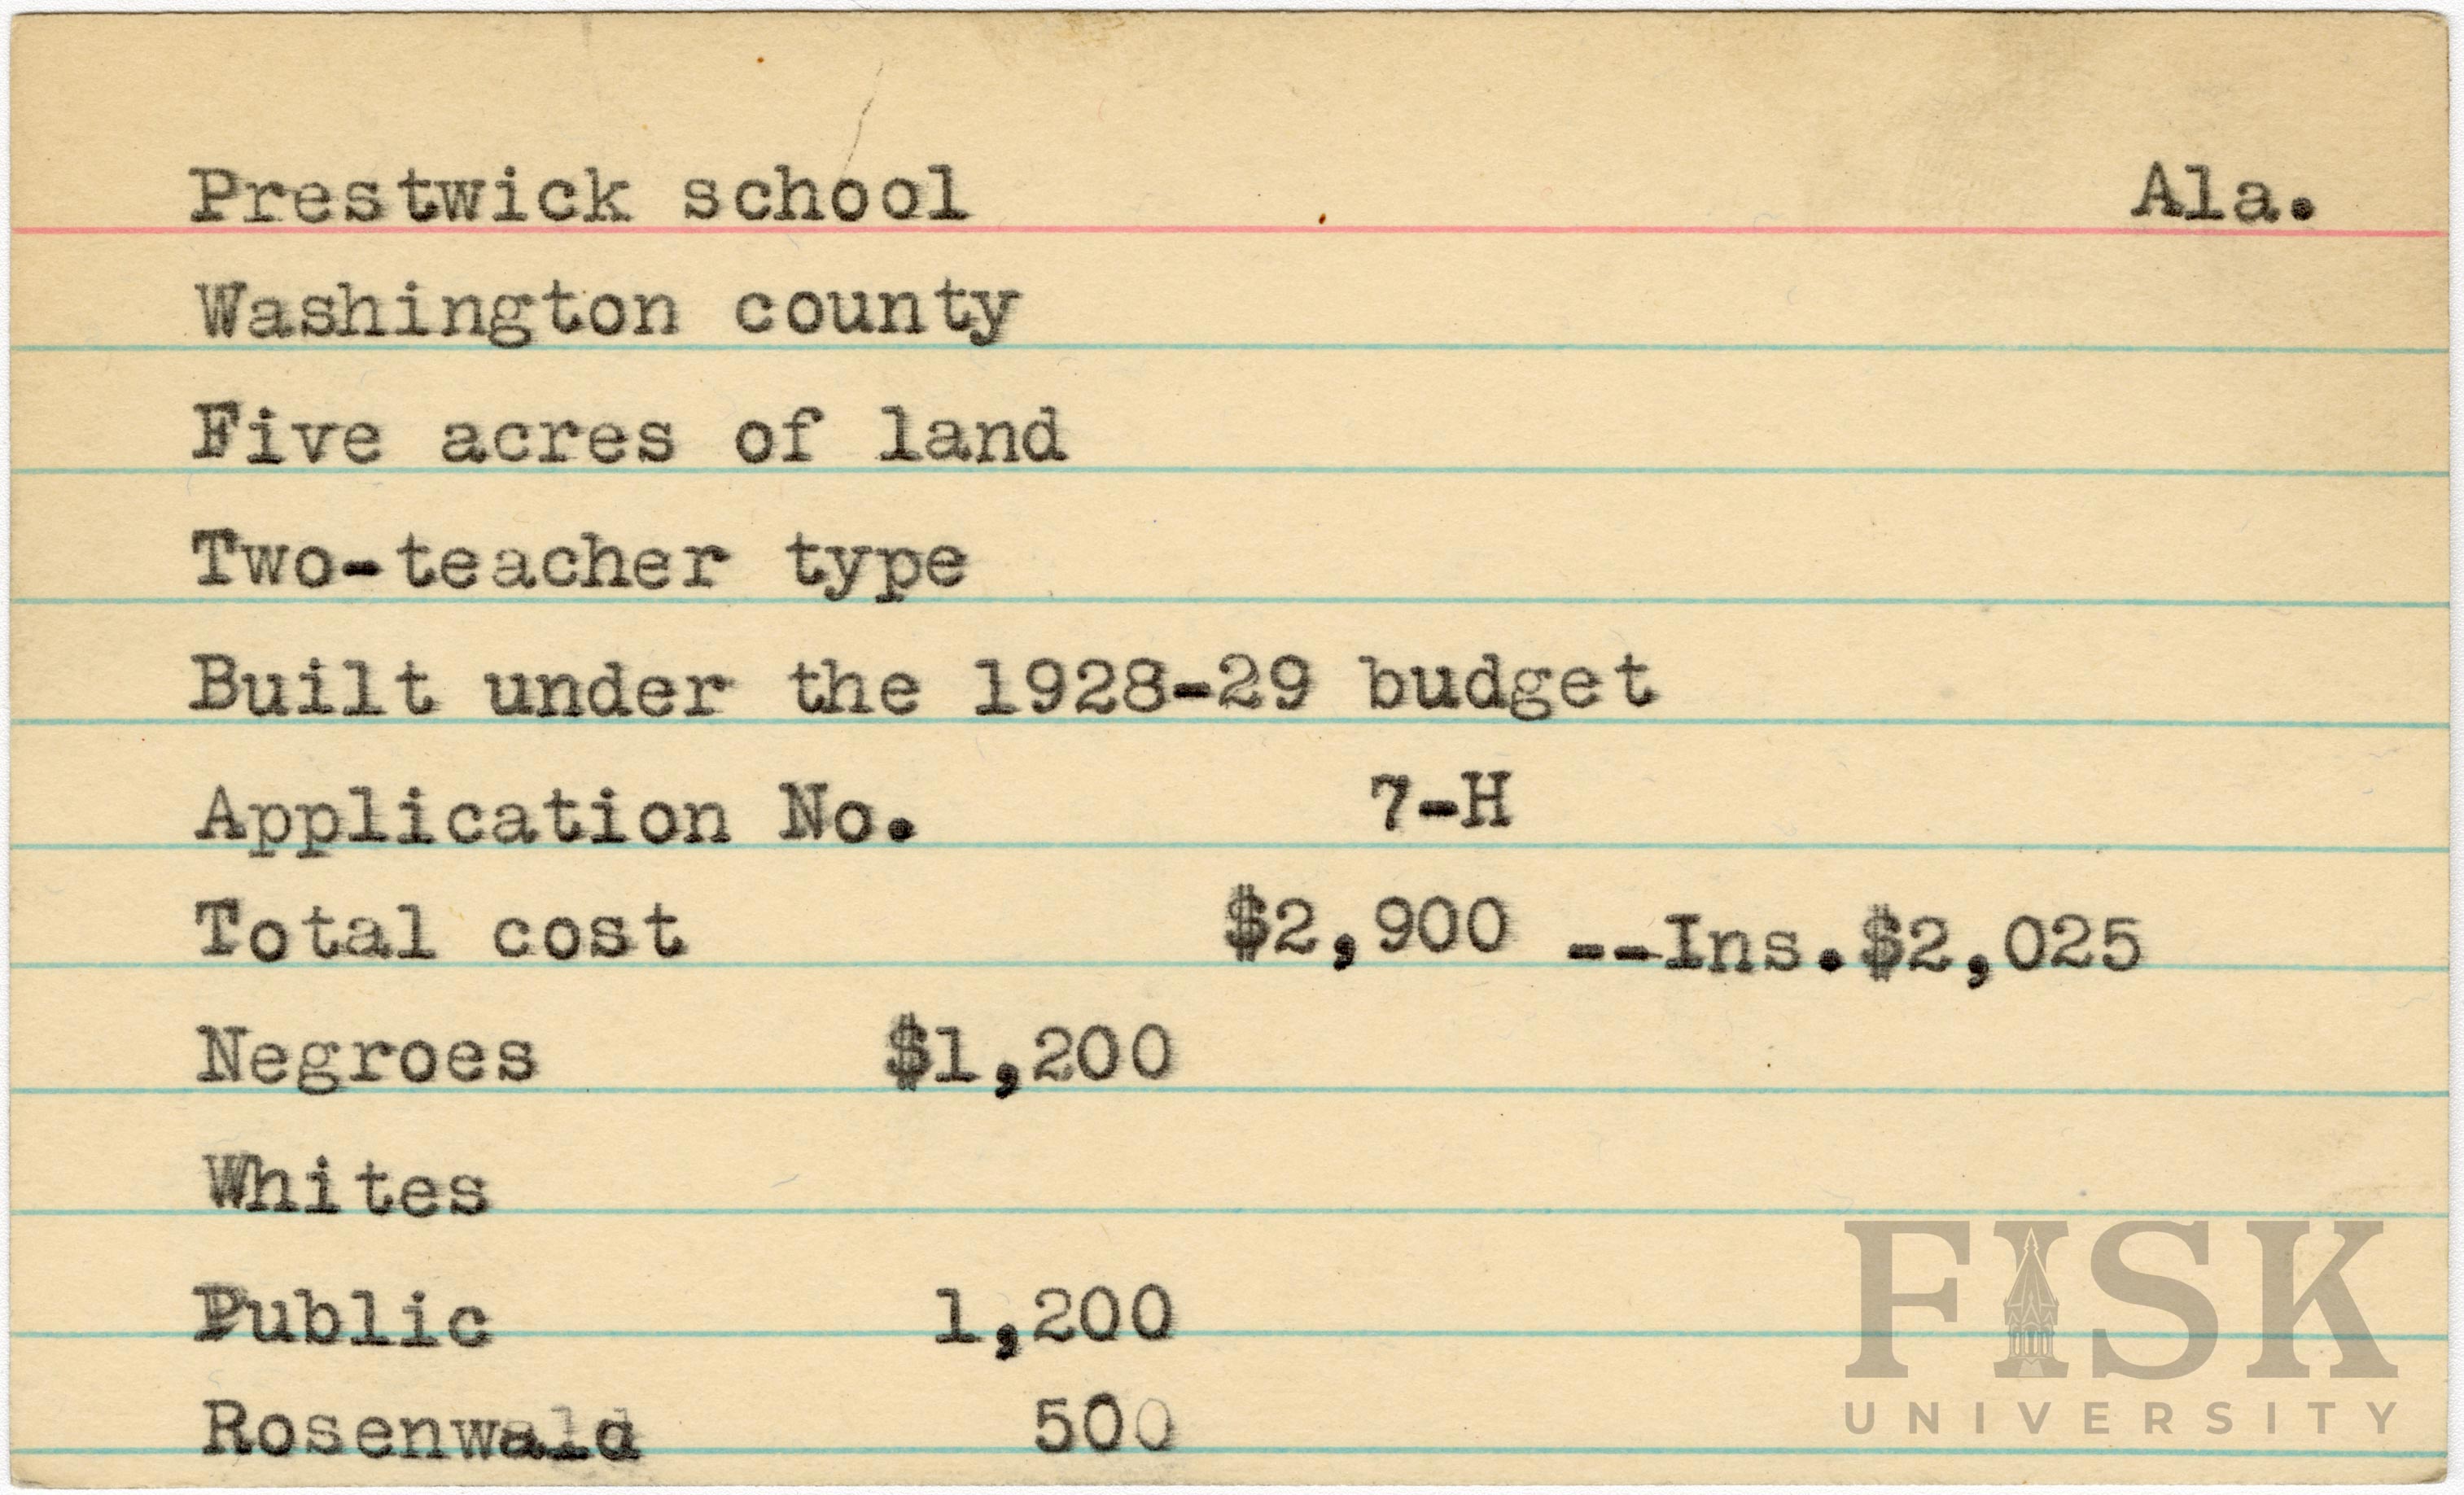 Prestwick school Ala.
Washington county
Five acres of land
Two-teacher type
Built under the 1928-29 budget
Application No. 7-H
Total cost $2,900 --Ins.$2,025
Negroes $1,200
Whites
Public 1,200
Rosenwald 500
FISK
UNIVERSITY